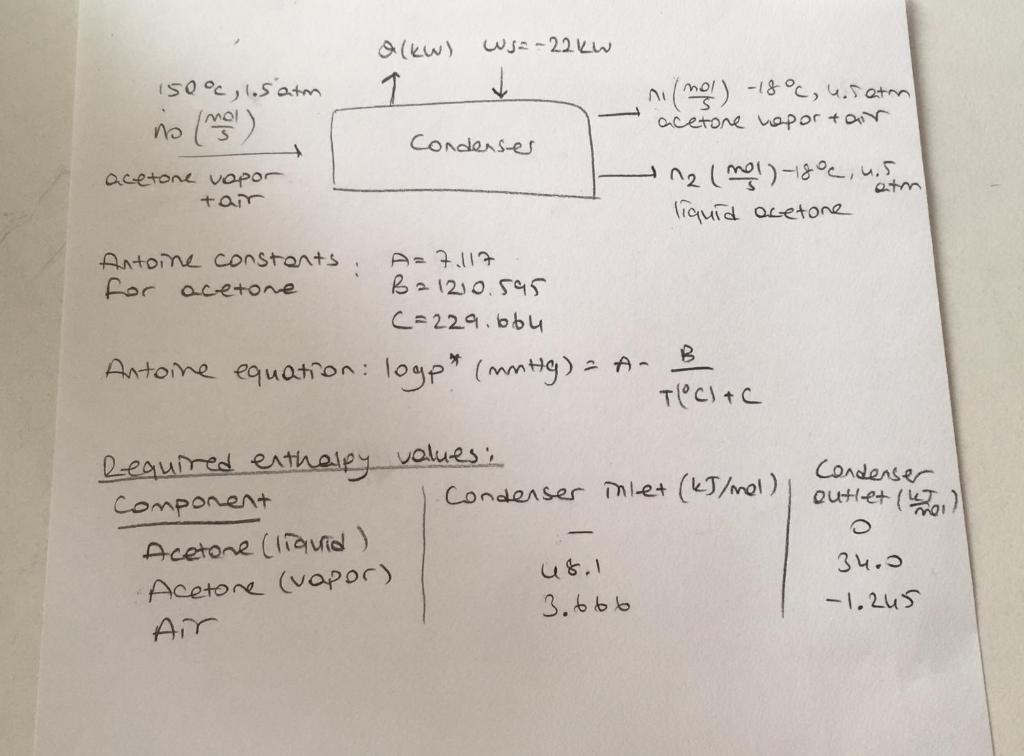 Q(kW) Ws=-22kW
150°C, 1.5 atm
ṅo (mol/s)
acetone vapor
+air
Condenser
n1 (mol/s) -18°C, 4.5 atm
acetone vapor + air
n2 (mol/s) -18°C, 4.5 atm
liquid acetone
Antoine constants : A= 7.117
for acetone B= 1210.595
C=229.664
Antoine equation: logp* (mmHg) = A- B/T(°C)+C
Required enthalpy values:
Component Condenser inlet (kJ/mol) Condenser outlet (kJ/mol)
Acetone (liquid) - 0
Acetone (vapor) 48.1 34.0
Air 3.666 -1.245